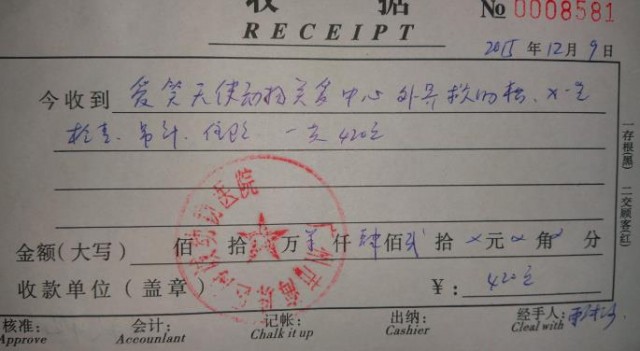 收据 № 0008581
RECEIPT
2015 年 12 月 9 日
今收到 爱笑天使动物关爱中心 外异救助 X-光
检查. 吊针. 住院 一天 420元
金额(大写) 佰 拾 万 仟 肆 佰 贰 拾 元 角 分
收款单位(盖章) ¥: 420元
核准: 会计: 记帐: 出纳: 经手人:
Approve Accountant Chalk it up Cashier Cleal with
一存根(黑) 二交顾客(红)